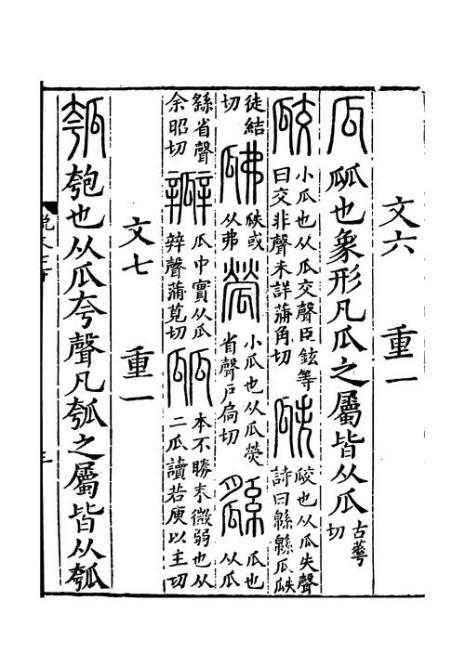 文六 重一
瓜 㼌也象形凡瓜之屬皆从瓜 古華
切
㼎 小瓜也从瓜交聲臣鉉等
曰交非聲未詳蒲角切 瓞 㼎也从瓜失聲
詩曰緜緜瓜瓞
徒結
切 瓞或
从弗 小瓜也从瓜熒
省聲戶扃切 瓜也
从瓜
繇省聲
余昭切 瓣 瓜中實从瓜
辡聲蒲莧切 㼌 本不勝末微弱也从
二瓜讀若庾以主切
文七 重一
瓠 匏也从瓜夸聲凡瓠之屬皆从瓠